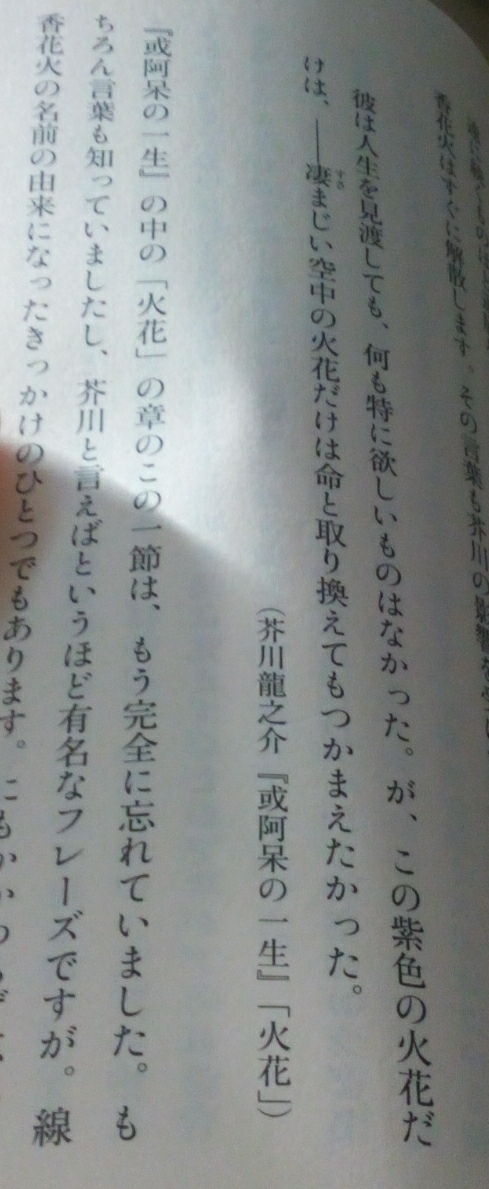 香花火はすぐに解散します。その言葉も芥川の影響を
彼は人生を見渡しても、何も特に欲しいものはなかった。が、この紫色の火花だ
けは、――凄まじい空中の火花だけは命と取り換えてもつかまえたかった。
（芥川龍之介『或阿呆の一生』「火花」）
『或阿呆の一生』の中の「火花」の章のこの一節は、もう完全に忘れていました。も
ちろん言葉も知っていましたし、芥川と言えばというほど有名なフレーズですが。線
香花火の名前の由来になったきっかけのひとつでもあります。にもかかわらず